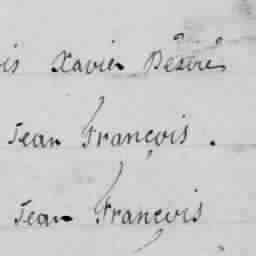 is Xavier Désiré
Jean François.
Jean François